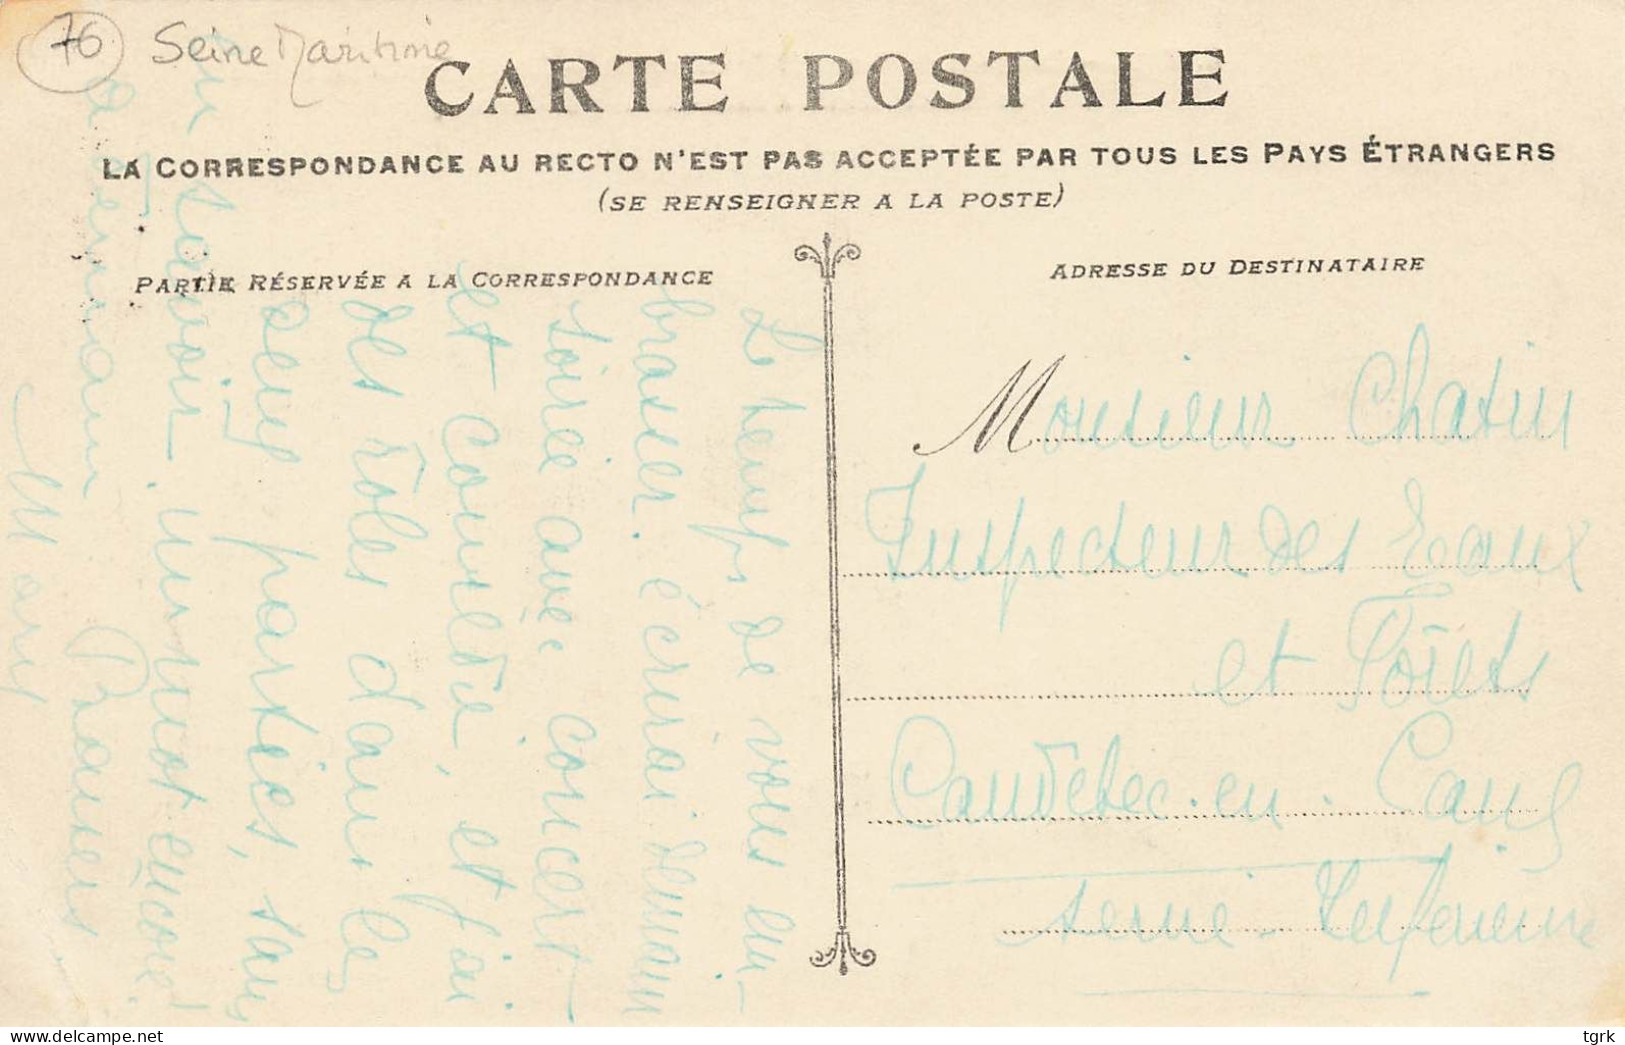 76 Seine Maritime
CARTE POSTALE
LA CORRESPONDANCE AU RECTO N'EST PAS ACCEPTÉE PAR TOUS LES PAYS ÉTRANGERS
(SE RENSEIGNER A LA POSTE)
PARTIE RÉSERVÉE A LA CORRESPONDANCE
Le temps de vous em-
brasser. écrirai demain
soirée avec concert
et comédie, et j'ai
des rôles dans les
deux parties, sans
en savoir un mot encore!
à demain Baisers.
Mary
ADRESSE DU DESTINATAIRE
Monsieur Chatin
Inspecteur des Eaux
et Forêts
Caudebec-en-Caux
Seine-Inférieure
tgrk